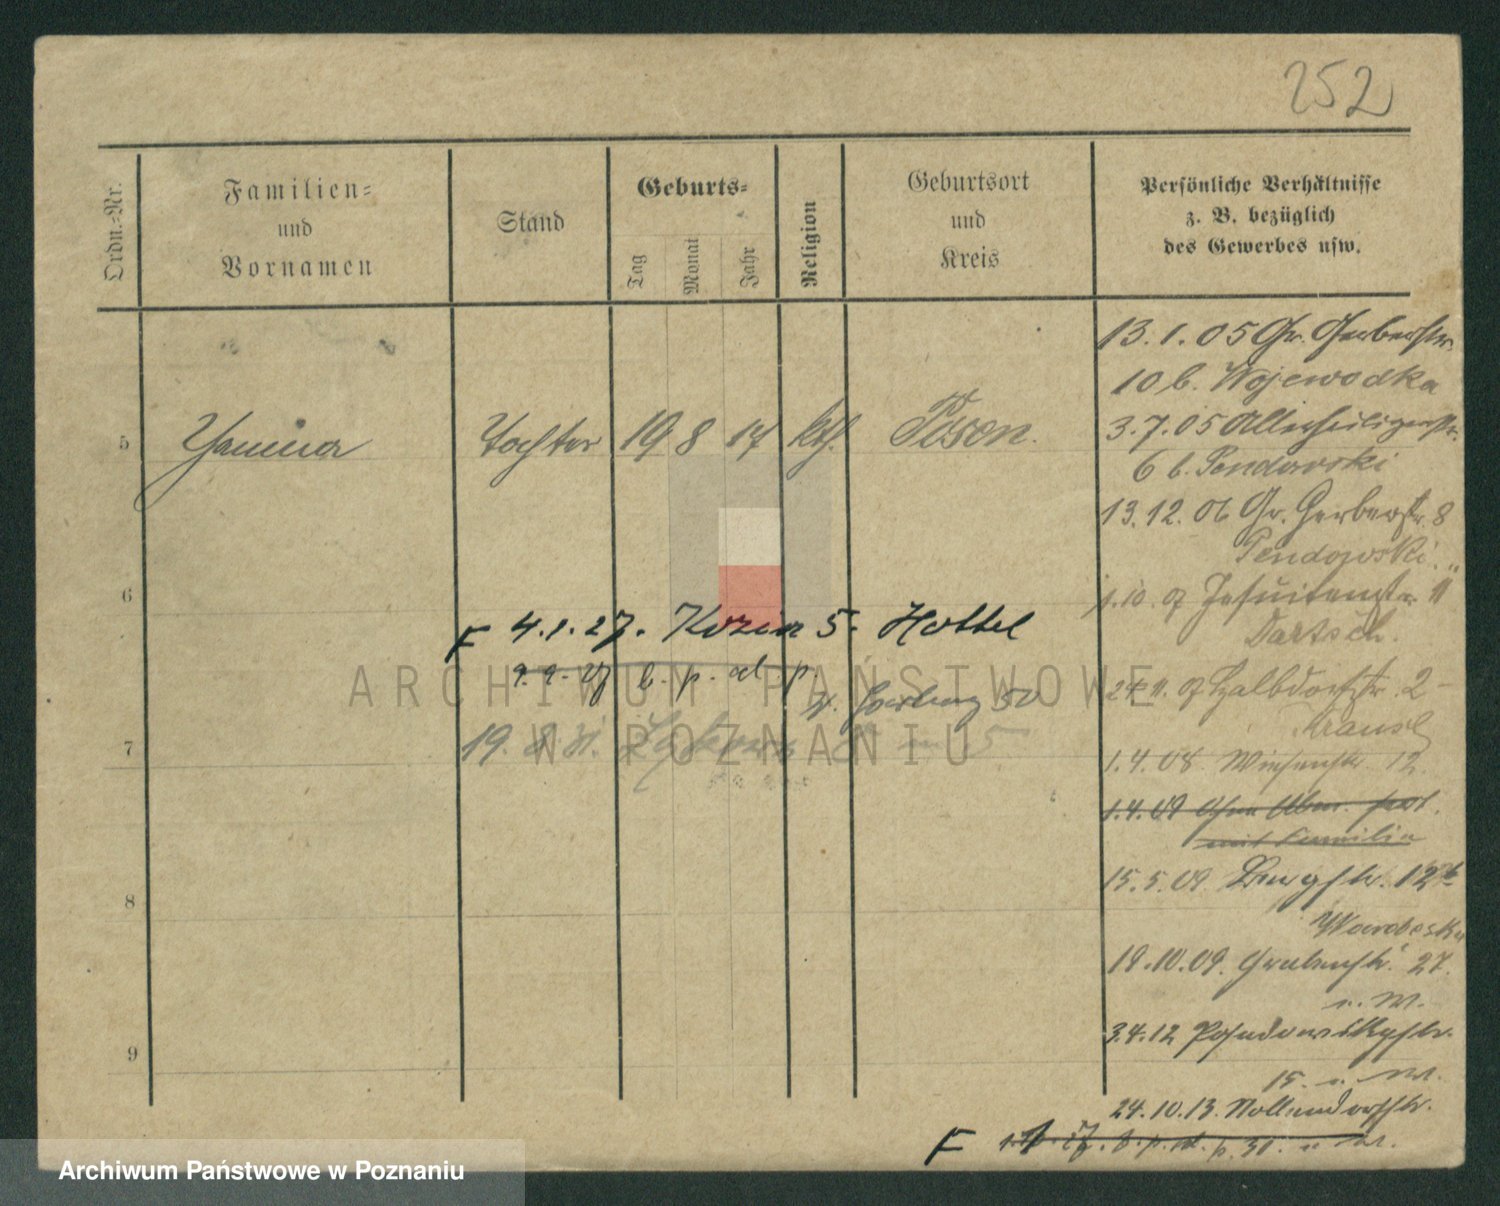 252
Ordn.=Nr.
Familien=
und
Vornamen
Stand
Geburts=
Tag
Monat
Jahr
Religion
Geburtsort
und
Kreis
Persönliche Verhältnisse
z. B. bezüglich
des Gewerbes usw.
5 Janina Tochter 19 8 17 kth. Posen.
6
7
8
9
13.1.05 Gr. Gerberstr.
10 b. Wojewodka
3.7.05 Allerheiligenstr.
6 b. Pendowski
13.12.06 Gr. Gerberstr. 8
Pendowski.
1.10.07 Jesuitenstr. 11
Bartsch.
24.11.07 Halbdorfstr. 2
Krause
1.4.08 Wiesenstr. 12.
1.4.09
mit Familie
15.5.09.
19.10.09. Grabenstr. 27.
3.4.12 Posadowskystr.
15.
24.10.13. Nollendorfstr.
F 4.1.27. Kozia 5. Hottel
9.9.27 b. p. ad. p.
19.8.
F
ARCHIWUM PAŃSTWOWE
W POZNANIU
Archiwum Państwowe w Poznaniu